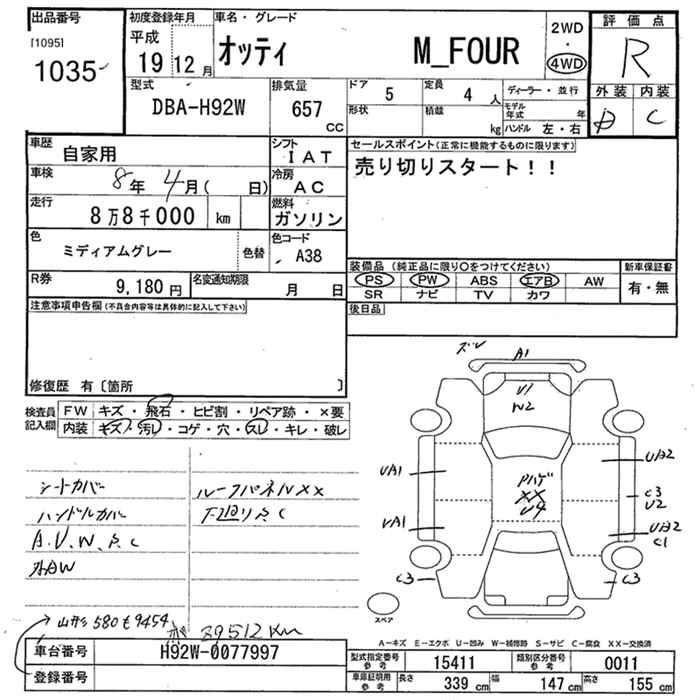 出品番号
[1095]
1035
初度登録年月
平成
19 12 月
車名・グレード
オッティ M_FOUR
2WD
・
4WD
評価点
R
外装 内装
D C
型式
DBA-H92W
排気量
657 CC
ドア 5
定員 4 人
形状
積載 kg
ディーラー・並行
モデル年式 年
ハンドル 左・右
車歴
自家用
シフト
IAT
車検
8年 4月( 日)
冷房
AC
走行
8万8千000 km
燃料
ガソリン
色
ミディアムグレー
色替
色コード
A38
R券
9,180 円
名変通知期限
月 日
セールスポイント(正常に機能するものに限ります)
売り切りスタート!!
装備品(純正品に限り○をつけてください)
PS PW ABS エアB AW
SR ナビ TV カワ
新車保証書
有・無
後日品
注意事項申告欄(不具合内容等は具体的に記入して下さい)
修復歴 有〔箇所 〕
検査員記入欄
FW キズ・飛石・ヒビ割・リペア跡・×要
内装 キズ・汚レ・コゲ・穴・スレ・キレ・破レ
シートカバー
ハンドルカバー
A.U.W.S.C
外AW
ルーフパネルXX
下廻りS.C
ズレ
A1
U1
W2
UA1
UA1
C3
Pハゲ
XX
U4
UB2
C3
U2
UB2
C1
C3
スペア
580 を 9454
89512km
A-キズ E-エクボ U-凹み W-補修跡 S-サビ C-腐食 XX-交換済
車台番号
H92W-0077997
登録番号
型式指定番号 参考
15411
類別区分番号 参考
0011
車庫証明用 参考
長さ 339 cm
幅 147 cm
高さ 155 cm